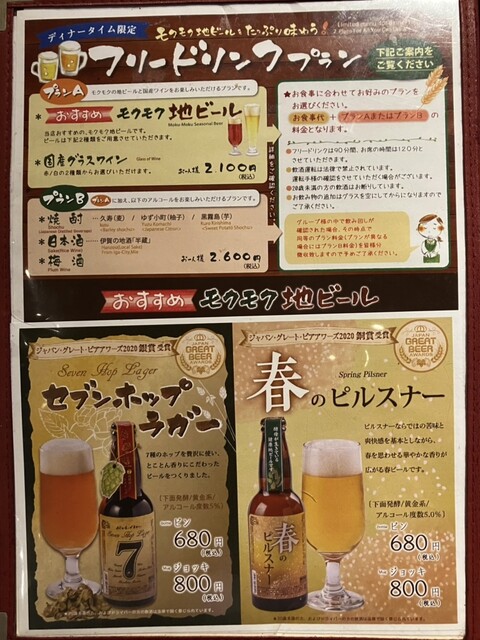 ディナータイム限定
モクモク地ビールをたっぷり味わう!
フリードリンクプラン
下記ご案内を
ご覧ください
プランA
モクモクの地ビールと国産ワインをお楽しみいただけるプランです。
＊ おすすめ モクモク地ビール
Moku-Moku Seasonal Beer
当店おすすめの、モクモク地ビールです。
ビールは下記2種類をご用意させていただきます。
＊ 国産グラスワイン
Glass of Wine
赤/白の2種類からお選びいただけます。
お一人様 2,100円
(税込)
プランB
プランAに加え、以下のアルコールをお楽しみいただけるプランです。
＊焼酎
Shochu
(Japanese distilled beverages)
久寿(麦) / ゆず小町(柚子) / 黒霧島(芋)
Yuzu Komachi
Kuro Kirishima
<Barley shochu>
<Japanese Citron>
<Sweet Potato Shochu>
＊日本酒
Sake(Rice Wine)
伊賀の地酒「半蔵」
Hanzo(Local Sake)
from Iga City Mie
＊梅酒
Plum Wine
お一人様 2,600円
(税込)
詳細をご確認ください
★お食事に合わせてお好みのプランを
お選びください。
お食事代 + プランAまたはプランB の
料金となります。
＊フリードリンクは90分間、お席の時間は120分と
させていただきます。
＊飲酒運転は法律で禁止されています。
運転手様の確認をさせていただく場合がございます。
＊20歳未満の方の飲酒はお断りしています。
＊お飲み物の追加はグラスを空にしてからになりますので
ご了承ください。
グループ様の中で飲み回しが
確認された場合、その時点で
同等のプラン料金(プランが異なる
場合にはプランB料金)を皆様分
徴収致しますので予めご了承ください。
おすすめ モクモク地ビール
ジャパン・グレート・ビアアワーズ2020 銀賞受賞
JAPAN
GREAT
BEER
AWARDS
Seven Hop Lager
セブンホップ
ラガー
7種のホップを贅沢に使い、
とことん香りにこだわった
ビールをつくりました。
[下面発酵/黄金系/
アルコール度数5%]
7
Seven Hop Lager
ビン
680円
(税込)
ジョッキ
800円
(税込)
ジャパン・グレート・ビアアワーズ2020 銅賞受賞
JAPAN
GREAT
BEER
AWARDS
春のピルスナー
Spring Pilsner
ピルスナーならではの苦味と
爽快感を基本としながら、
春を思わせる華やかな香りが
広がる春ビールです。
[下面発酵/黄金系/
アルコール度数5.0%]
春の
ピルスナー
ビン
680円
(税込)
ジョッキ
800円
(税込)